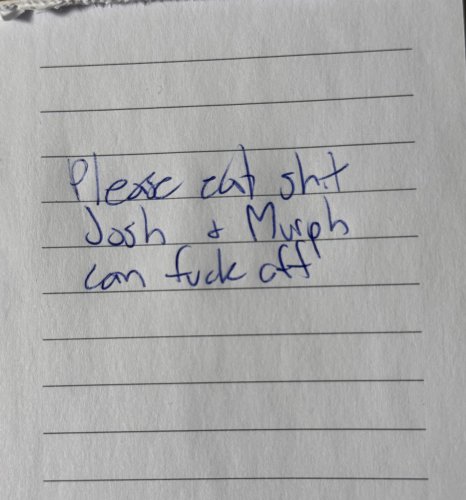 Please eat shit
Josh & Murph
can fuck off